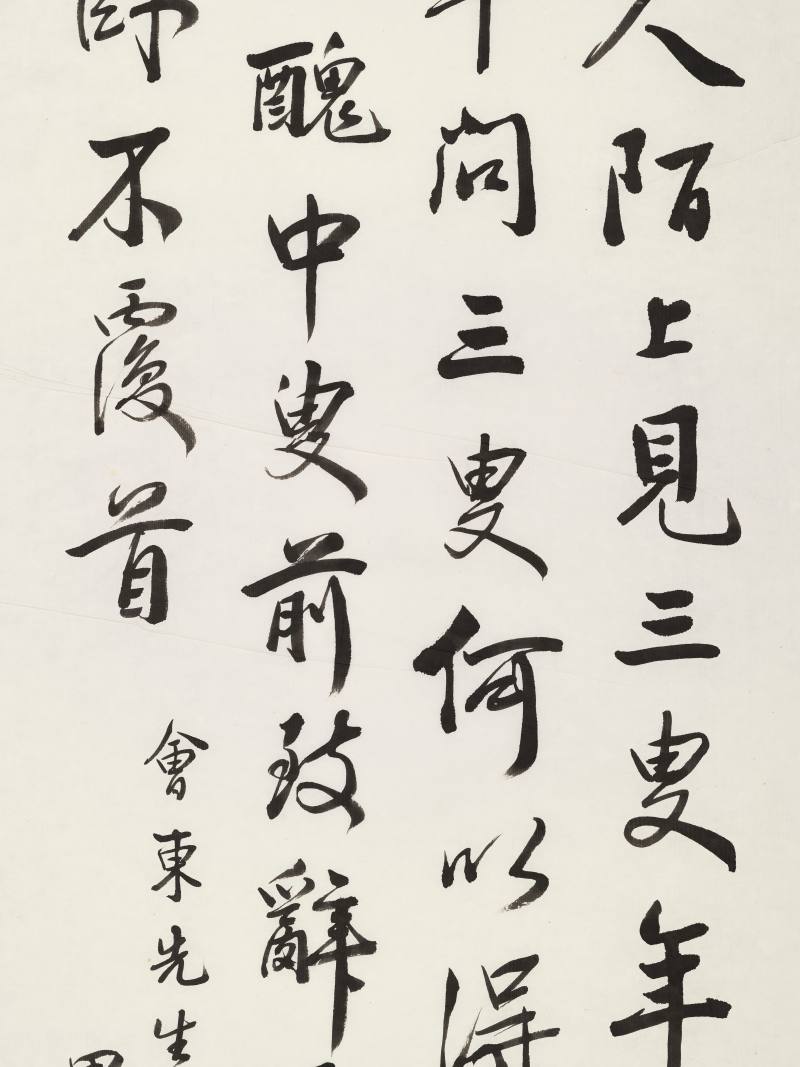 人陌上見三叟年
問三叟何以得
醜中叟前致辭
不覆首
會東先生